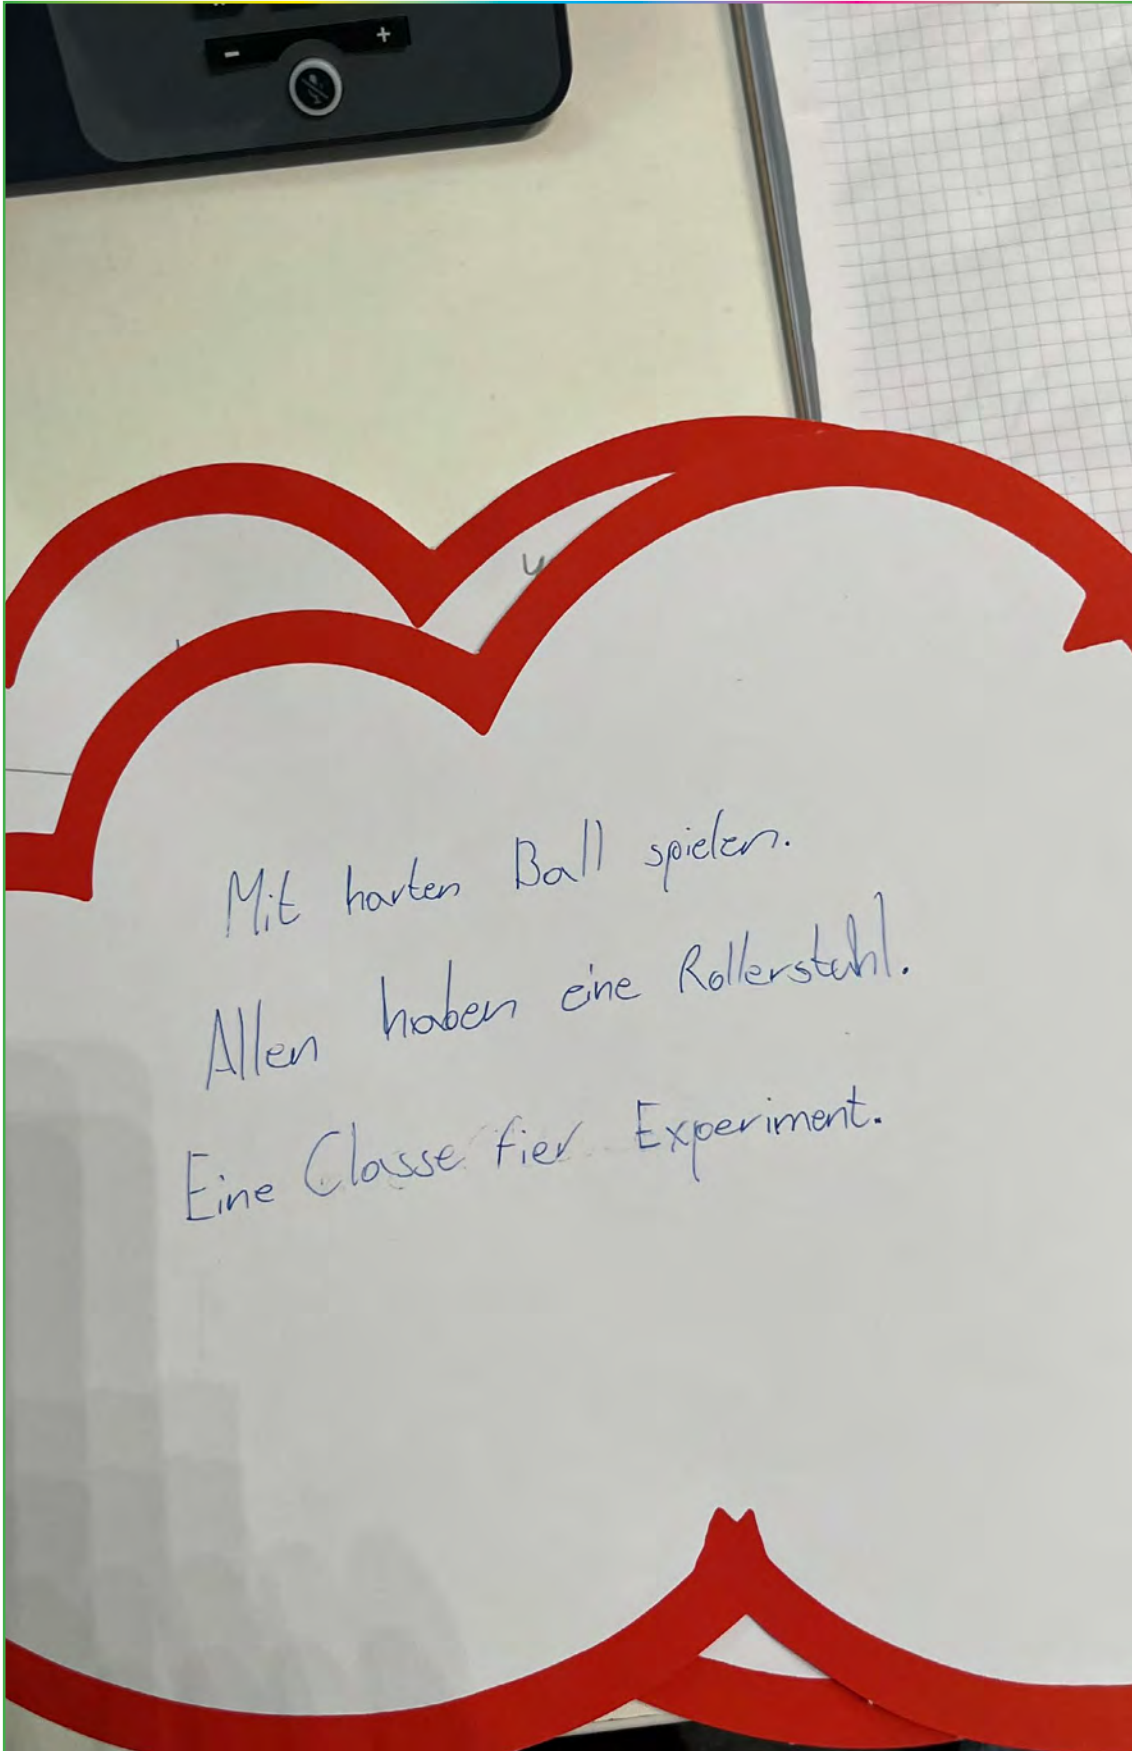 - +
Mit harten Ball spielen.
Allen haben eine Rollerstuhl.
Eine Classe fier Experiment.